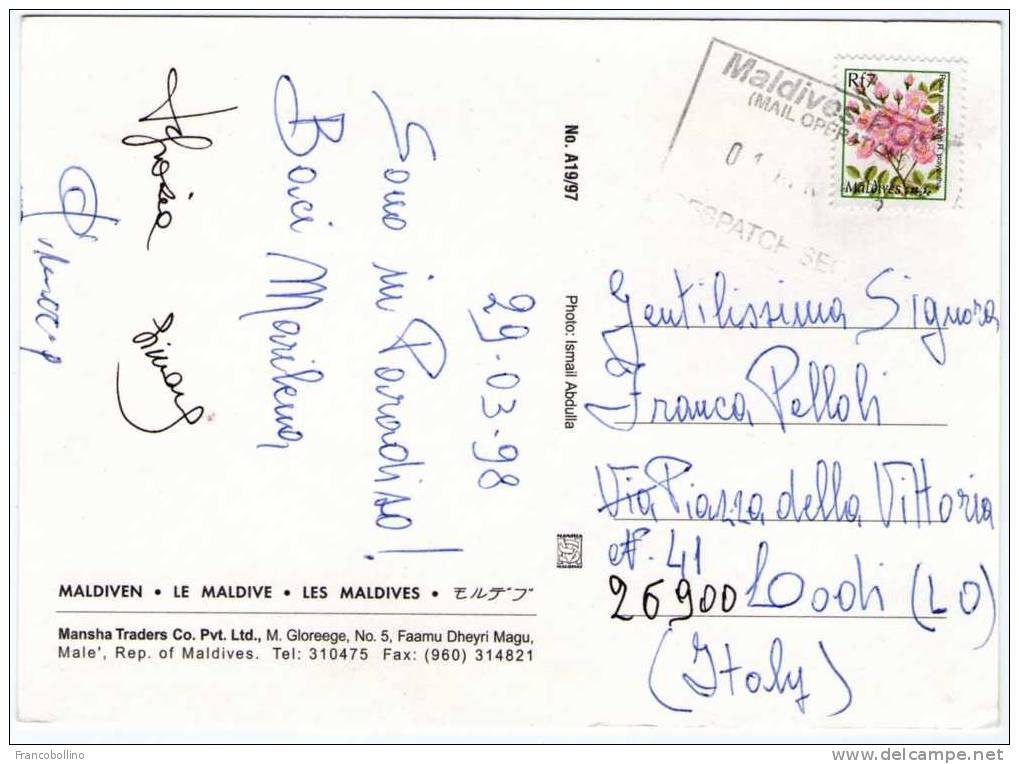 29.03.98
Sono in Paradiso!
Baci Marilena
Simona
No. A19/97
Photo: Ismail Abdulla
Maldives Post
(MAIL OPERATION
01
DESPATCH SEC
Rf7
Maldives
Gentilissima Signora
Franca Pelloli
Via Piazza della Vittoria
n. 41
26900 Lodi (LO)
(Italy)
MALDIVEN • LE MALDIVE • LES MALDIVES • モルデブ
Mansha Traders Co. Pvt. Ltd., M. Gloreege, No. 5, Faamu Dheyri Magu,
Male', Rep. of Maldives. Tel: 310475 Fax: (960) 314821
Francobollino
www.delcampe.net